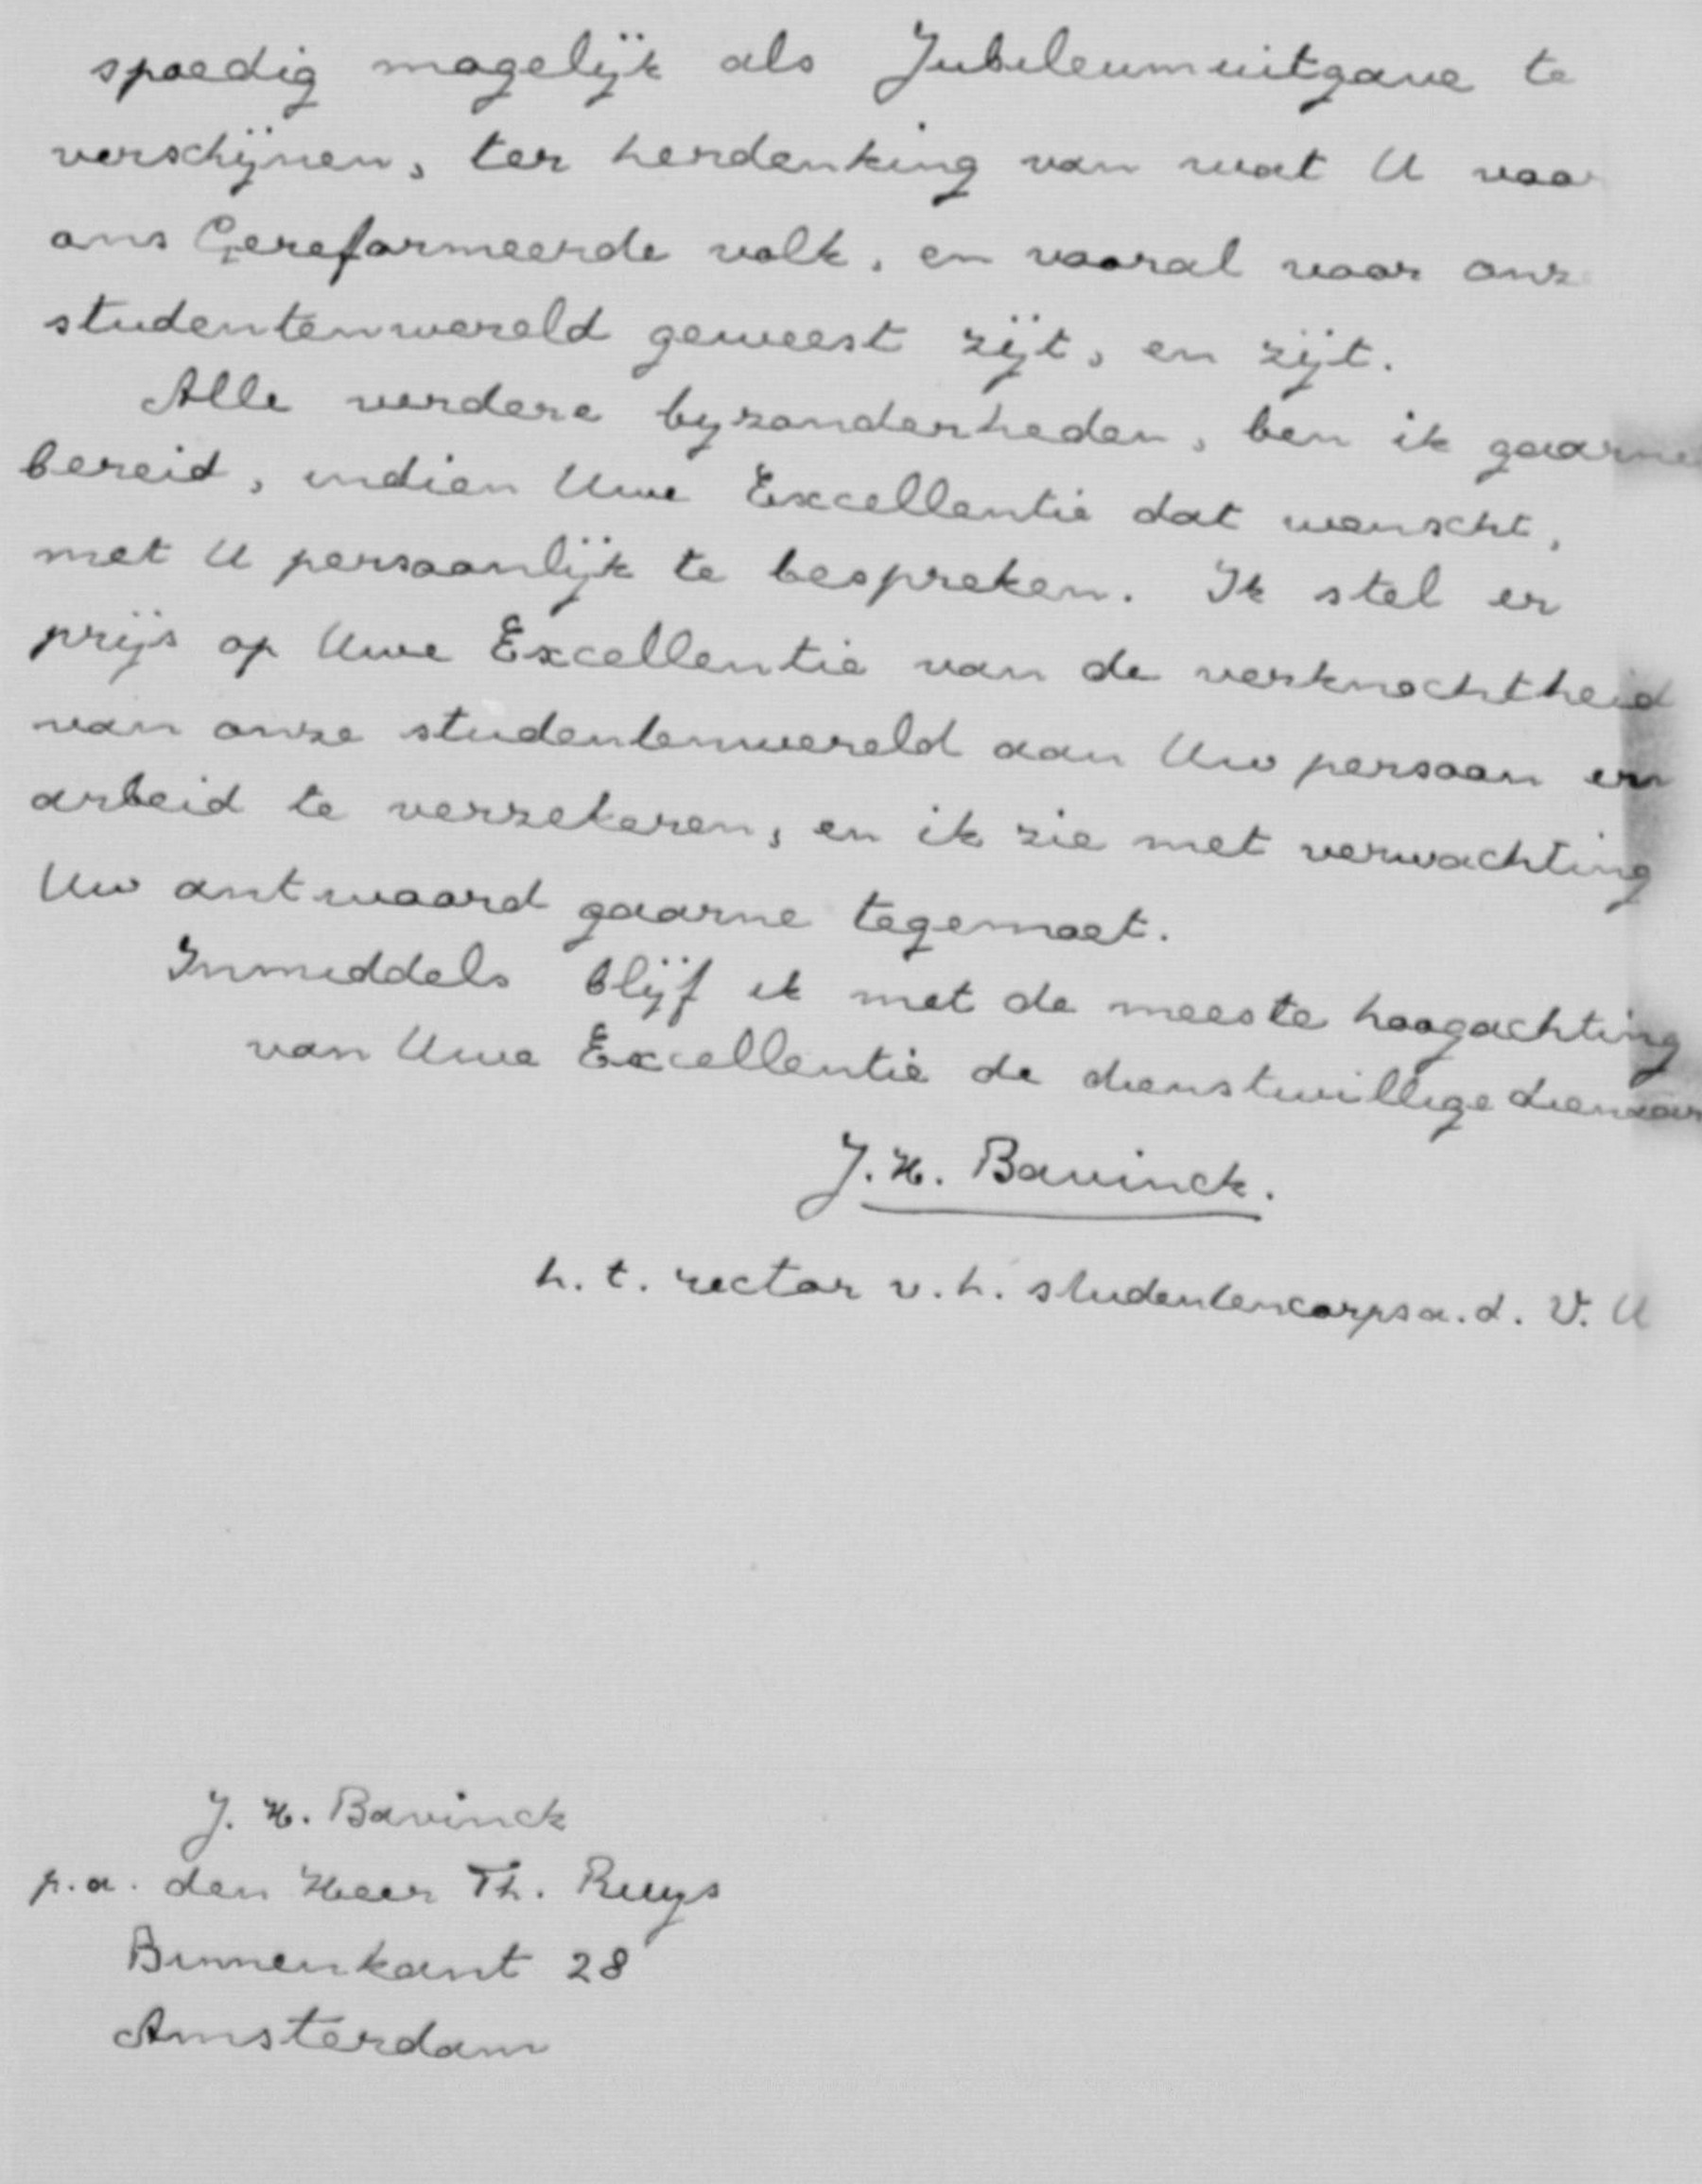 spoedig mogelijk als Jubileumuitgave te
verschijnen, ter herdenking van wat U voor
ons Gereformeerde volk, en vooral voor onze
studentenwereld geweest zijt, en zijt.
Alle verdere byzonderheden, ben ik gaarne
bereid, indien Uwe Excellentie dat wenscht,
met U persoonlijk te bespreken. Ik stel er
prijs op Uwe Excellentie van de verknochtheid
van onze studentenwereld aan Uw persoon en
arbeid te verzekeren, en ik zie met verwachting
Uw antwoord gaarne tegemoet.
Inmiddels blijf ik met de meeste hoogachting
van Uwe Excellentie de dienstwillige dienaar
J. H. Bavinck.
h. t. rector v. h. studentencorps a. d. V. U
J. H. Bavinck
p. a. den Heer Th. Ruys
Binnenkant 28
Amsterdam